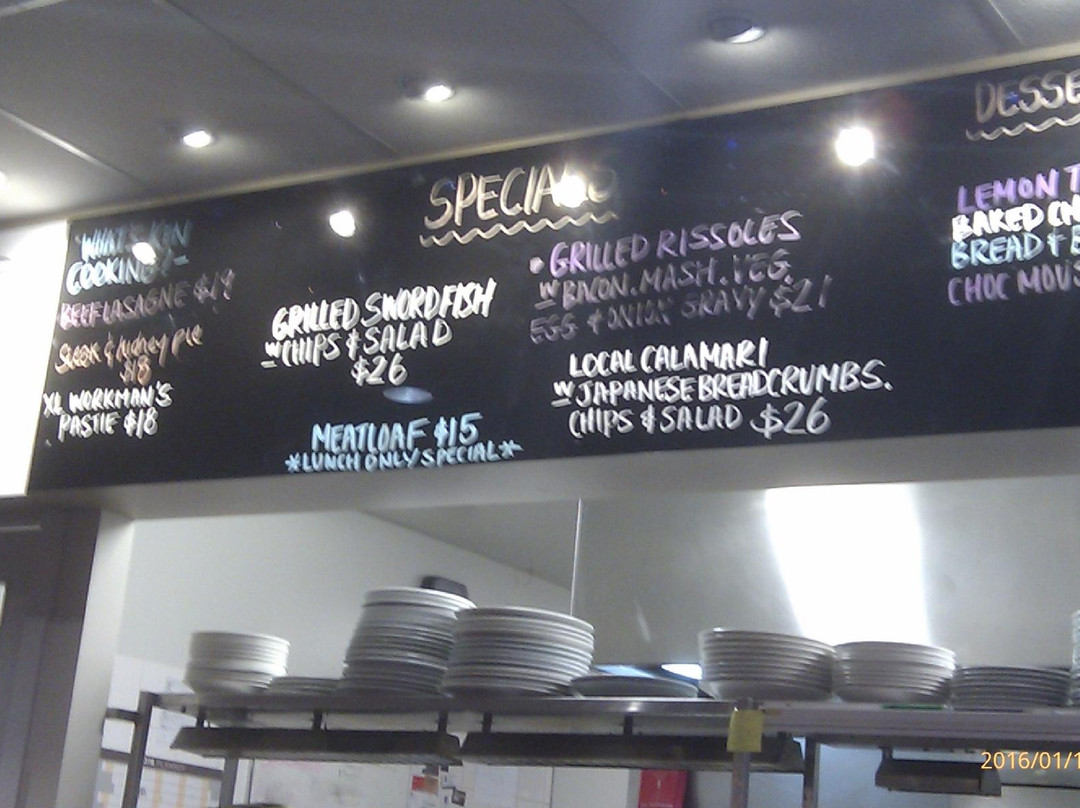 SPECIALS
"WHAT'S KON
COOKING"?-
BEEF LASAGNE $19
Steak & kidney pie
$18
XL WORKMAN'S
PASTIE $18
GRILLED SWORDFISH
W CHIPS & SALAD
$26
MEATLOAF $15
*LUNCH ONLY SPECIAL*
• GRILLED RISSOLES
W BACON. MASH. VEG.
EGG & ONION GRAVY $21
LOCAL CALAMARI
W JAPANESE BREADCRUMBS.
CHIPS & SALAD $26
DESSE
LEMON T
BAKED CH
BREAD & B
CHOC MOUS
2016/01/1